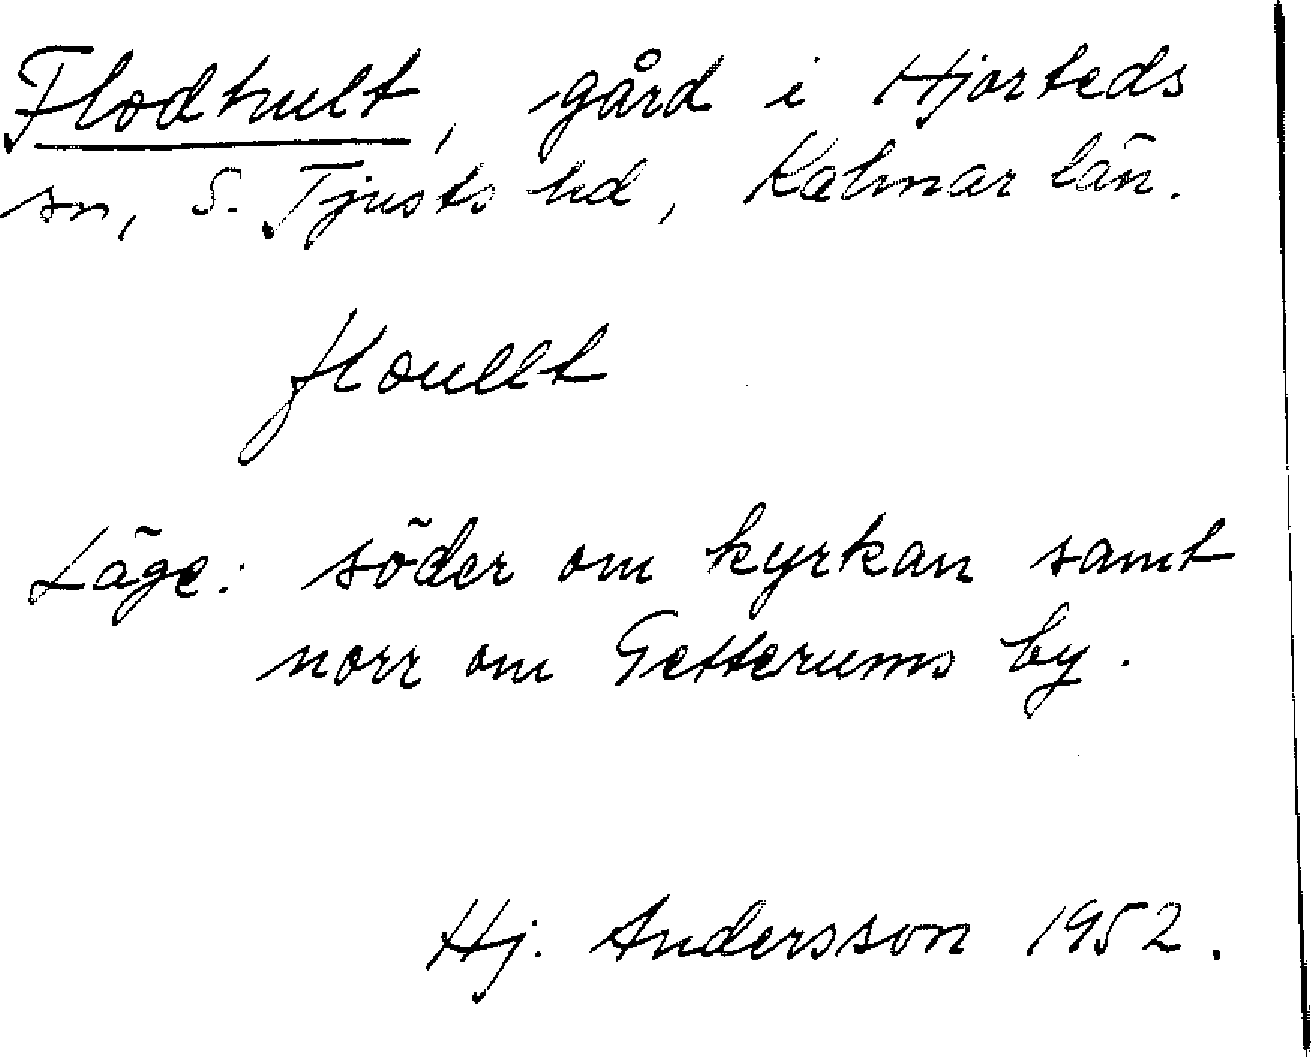 Flodhult, gård i Hjorteds
sn, S. Tjusts hd, Kalmar län.
floullt
Läge: söder om kyrkan samt
norr om Getterums by.
Hj. Andersson 1952.